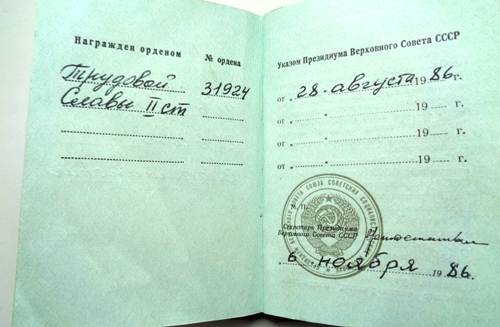 Награжден орденом
№ ордена
Трудовой
31924
Славы II ст
Указом Президиума Верховного Совета СССР
от „28„ августа 1986 г.
от „ „ 19 г.
от „ „ 19 г.
от „ „ 19 г.
М. П.
Секретарь Президиума
Верховного Совета СССР
„6„ ноября 1986.